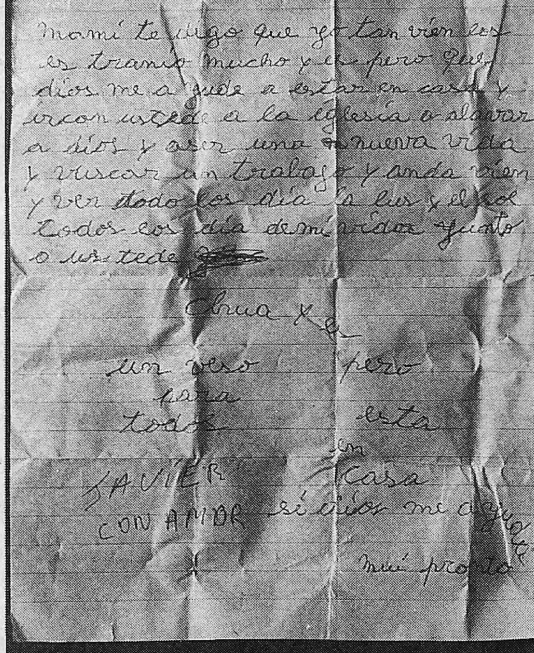 mami te digo que yo tan vien los
es tranio mucho y es pero que
dios me a yude a estar en casa y
ircon ustede a la eglesia a alavar
a dios y aser una nueva vida
y vuscar un trabago y anda vien
y ver todo los dia la lus y el sol
todos los dia demi vida yunto
a us tede
Chua y es
un veso pero
para
todos esta
en
JAVIER casa
CON AMOR si dios me ayuda
mui pronto